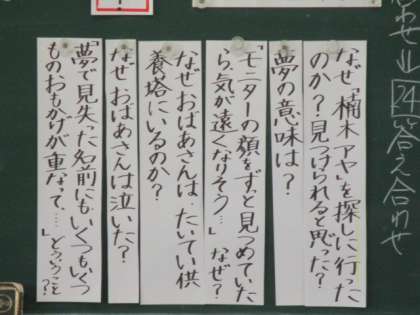 答え合わせ
なぜ「楠木アヤ」を探しに行った
のか？見つけられると思った？
夢の意味は？
「モニターの顔をずっと見つめていた
ら、気が遠くなりそう…」なぜ？
なぜおばあさんは、たいてい供
養塔にいるのか？
なぜおばあさんは泣いた？
「夢で見失った名前にもいくつもいつ
ものおもかげが重なって、……」どういうこと？